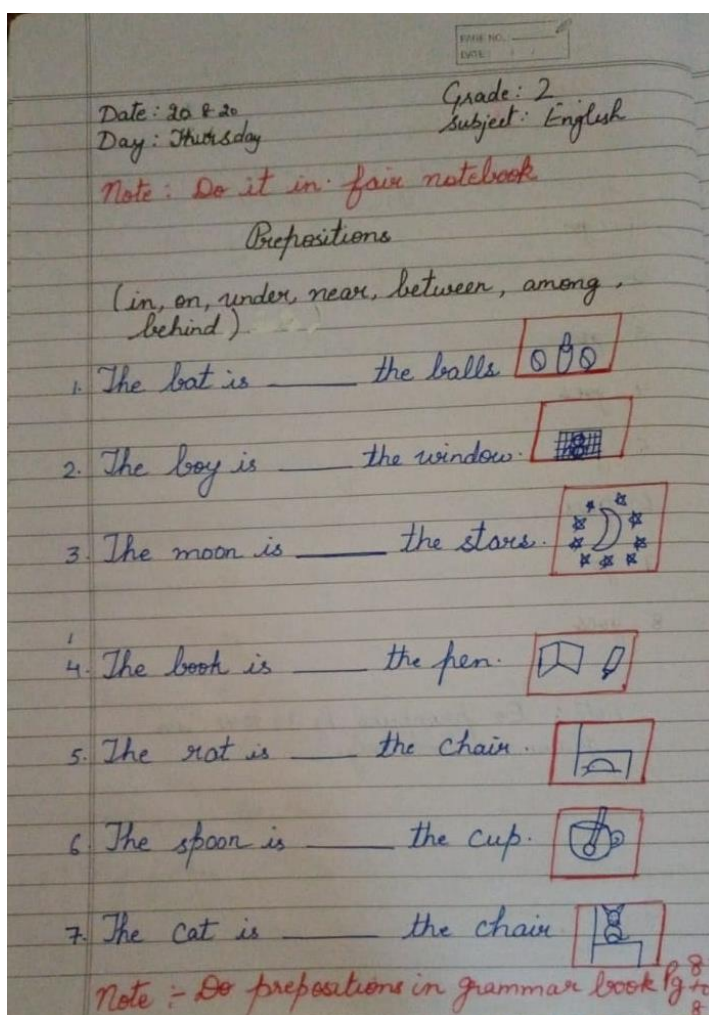 PAGE NO.:
DATE: / /
Date: 20 8 20
Grade: 2
Day: Thursday
Subject: English
Note: Do it in fair notebook
Prepositions
(in, on, under, near, between, among,
behind)
1. The bat is ______ the balls
2. The boy is ______ the window.
3. The moon is ______ the stars.
4. The book is ______ the pen.
5. The rat is ______ the chair.
6. The spoon is ______ the cup.
7. The cat is ______ the chair
Note :- Do prepositions in grammar book Pg 8
to
8